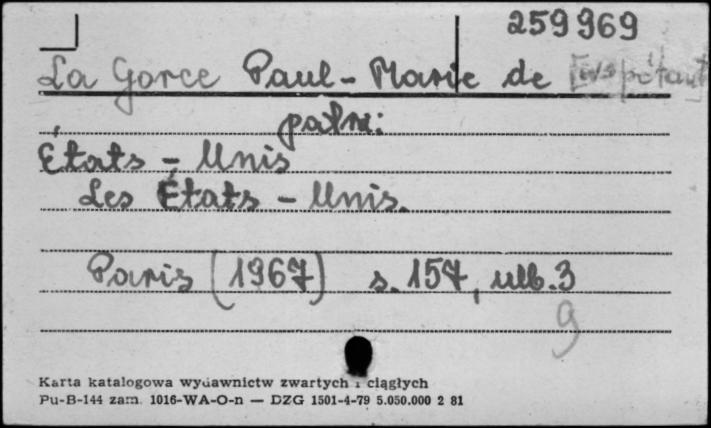 259969
La Gorce Paul-Marie de
patrz:
États-Unis
Les États-Unis.
Paris (1967) s. 157, ulb. 3
9
Karta katalogowa wydawnictw zwartych i ciągłych
Pu-B-144 zam. 1016-WA-O-n — DZG 1501-4-79 5.050.000 2 81